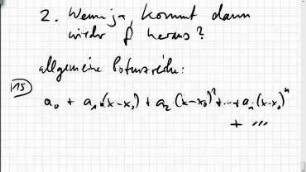 2. Wenn ja, kommt dann
wieder f heraus?
allgemeine Potenzreihe:
a₀ + a₁(x-x₀) + a₂(x-x₀)² + ... + aₙ(x-x₀)ⁿ
+ ...